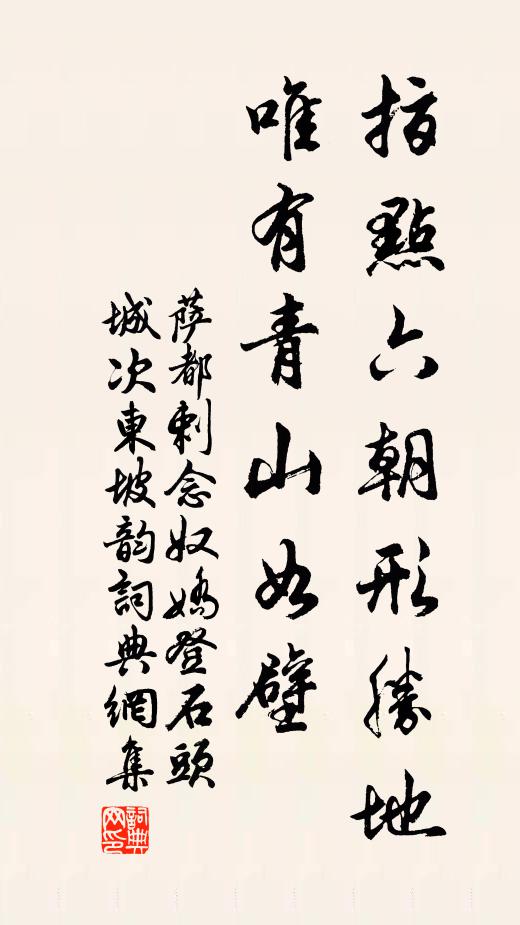 指點六朝形勝地
唯有青山如壁
萨都剌念奴嬌登石頭
城次東坡韵詞典網集
詞典网印